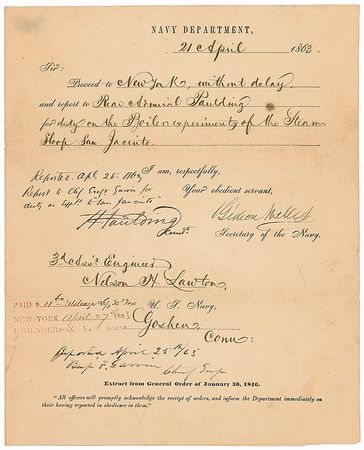 NAVY DEPARTMENT,
21 April 1863
Sir:
Proceed to New York, without delay,
and report to Rear Admiral Paulding
for duty on the Boiler experiments of the Steam
Sloop San Jacinto.
Reported Apl 25. 1863 I am, respectfully,
Report to Chf Engr Garvin for Your obedient servant,
duty on Expts to "San Jacinto"
H Paulding Gideon Welles
Comdt Secretary of the Navy.
3d Asst Engineer
Nelson H Lawton,
PAID $ 11 Mileage U. S. Navy,
NEW-YORK, April 27 1863 Goshen
HENDERSON, Navy Agent Conn:
Reported April 25th/63
Benj F. Garvin Chief Eng
Extract from General Order of January 30, 1846.
"All officers will promptly acknowledge the receipt of orders, and inform the Department immediately on
their having reported in obedience to them."